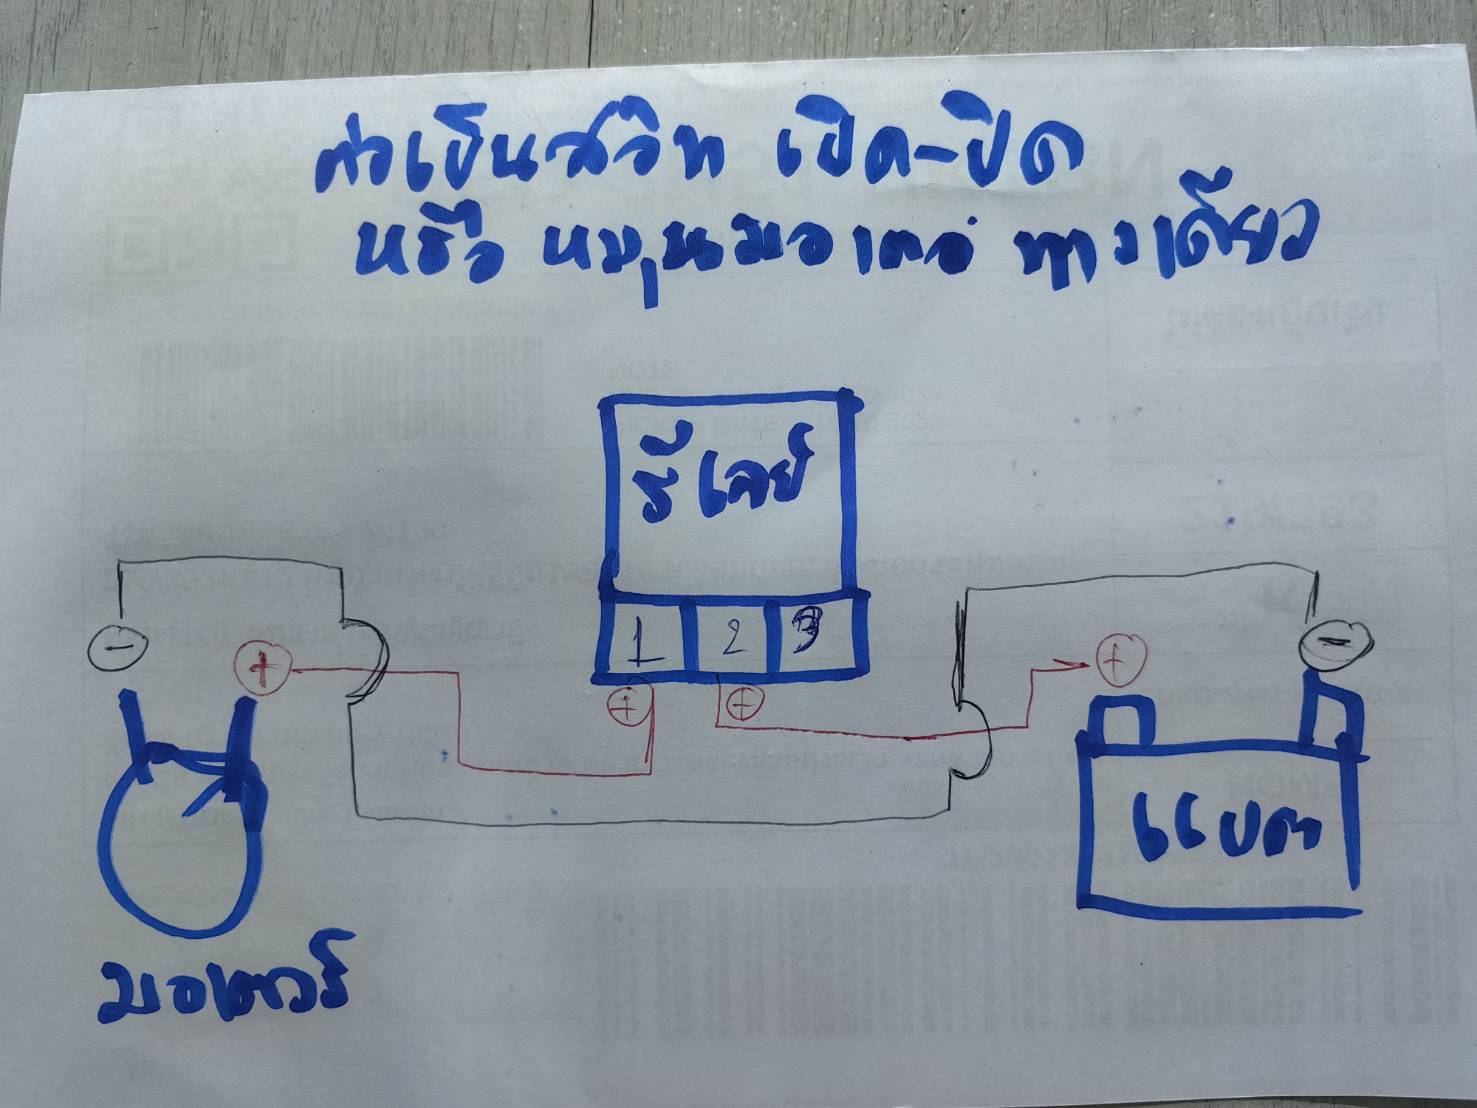 ต่อเป็นสวิท เปิด-ปิด
หรือ หมุนมอเตอร์ ทางเดียว
รีเลย์
1 2 3
- + + + + -
แบต
มอเตอร์